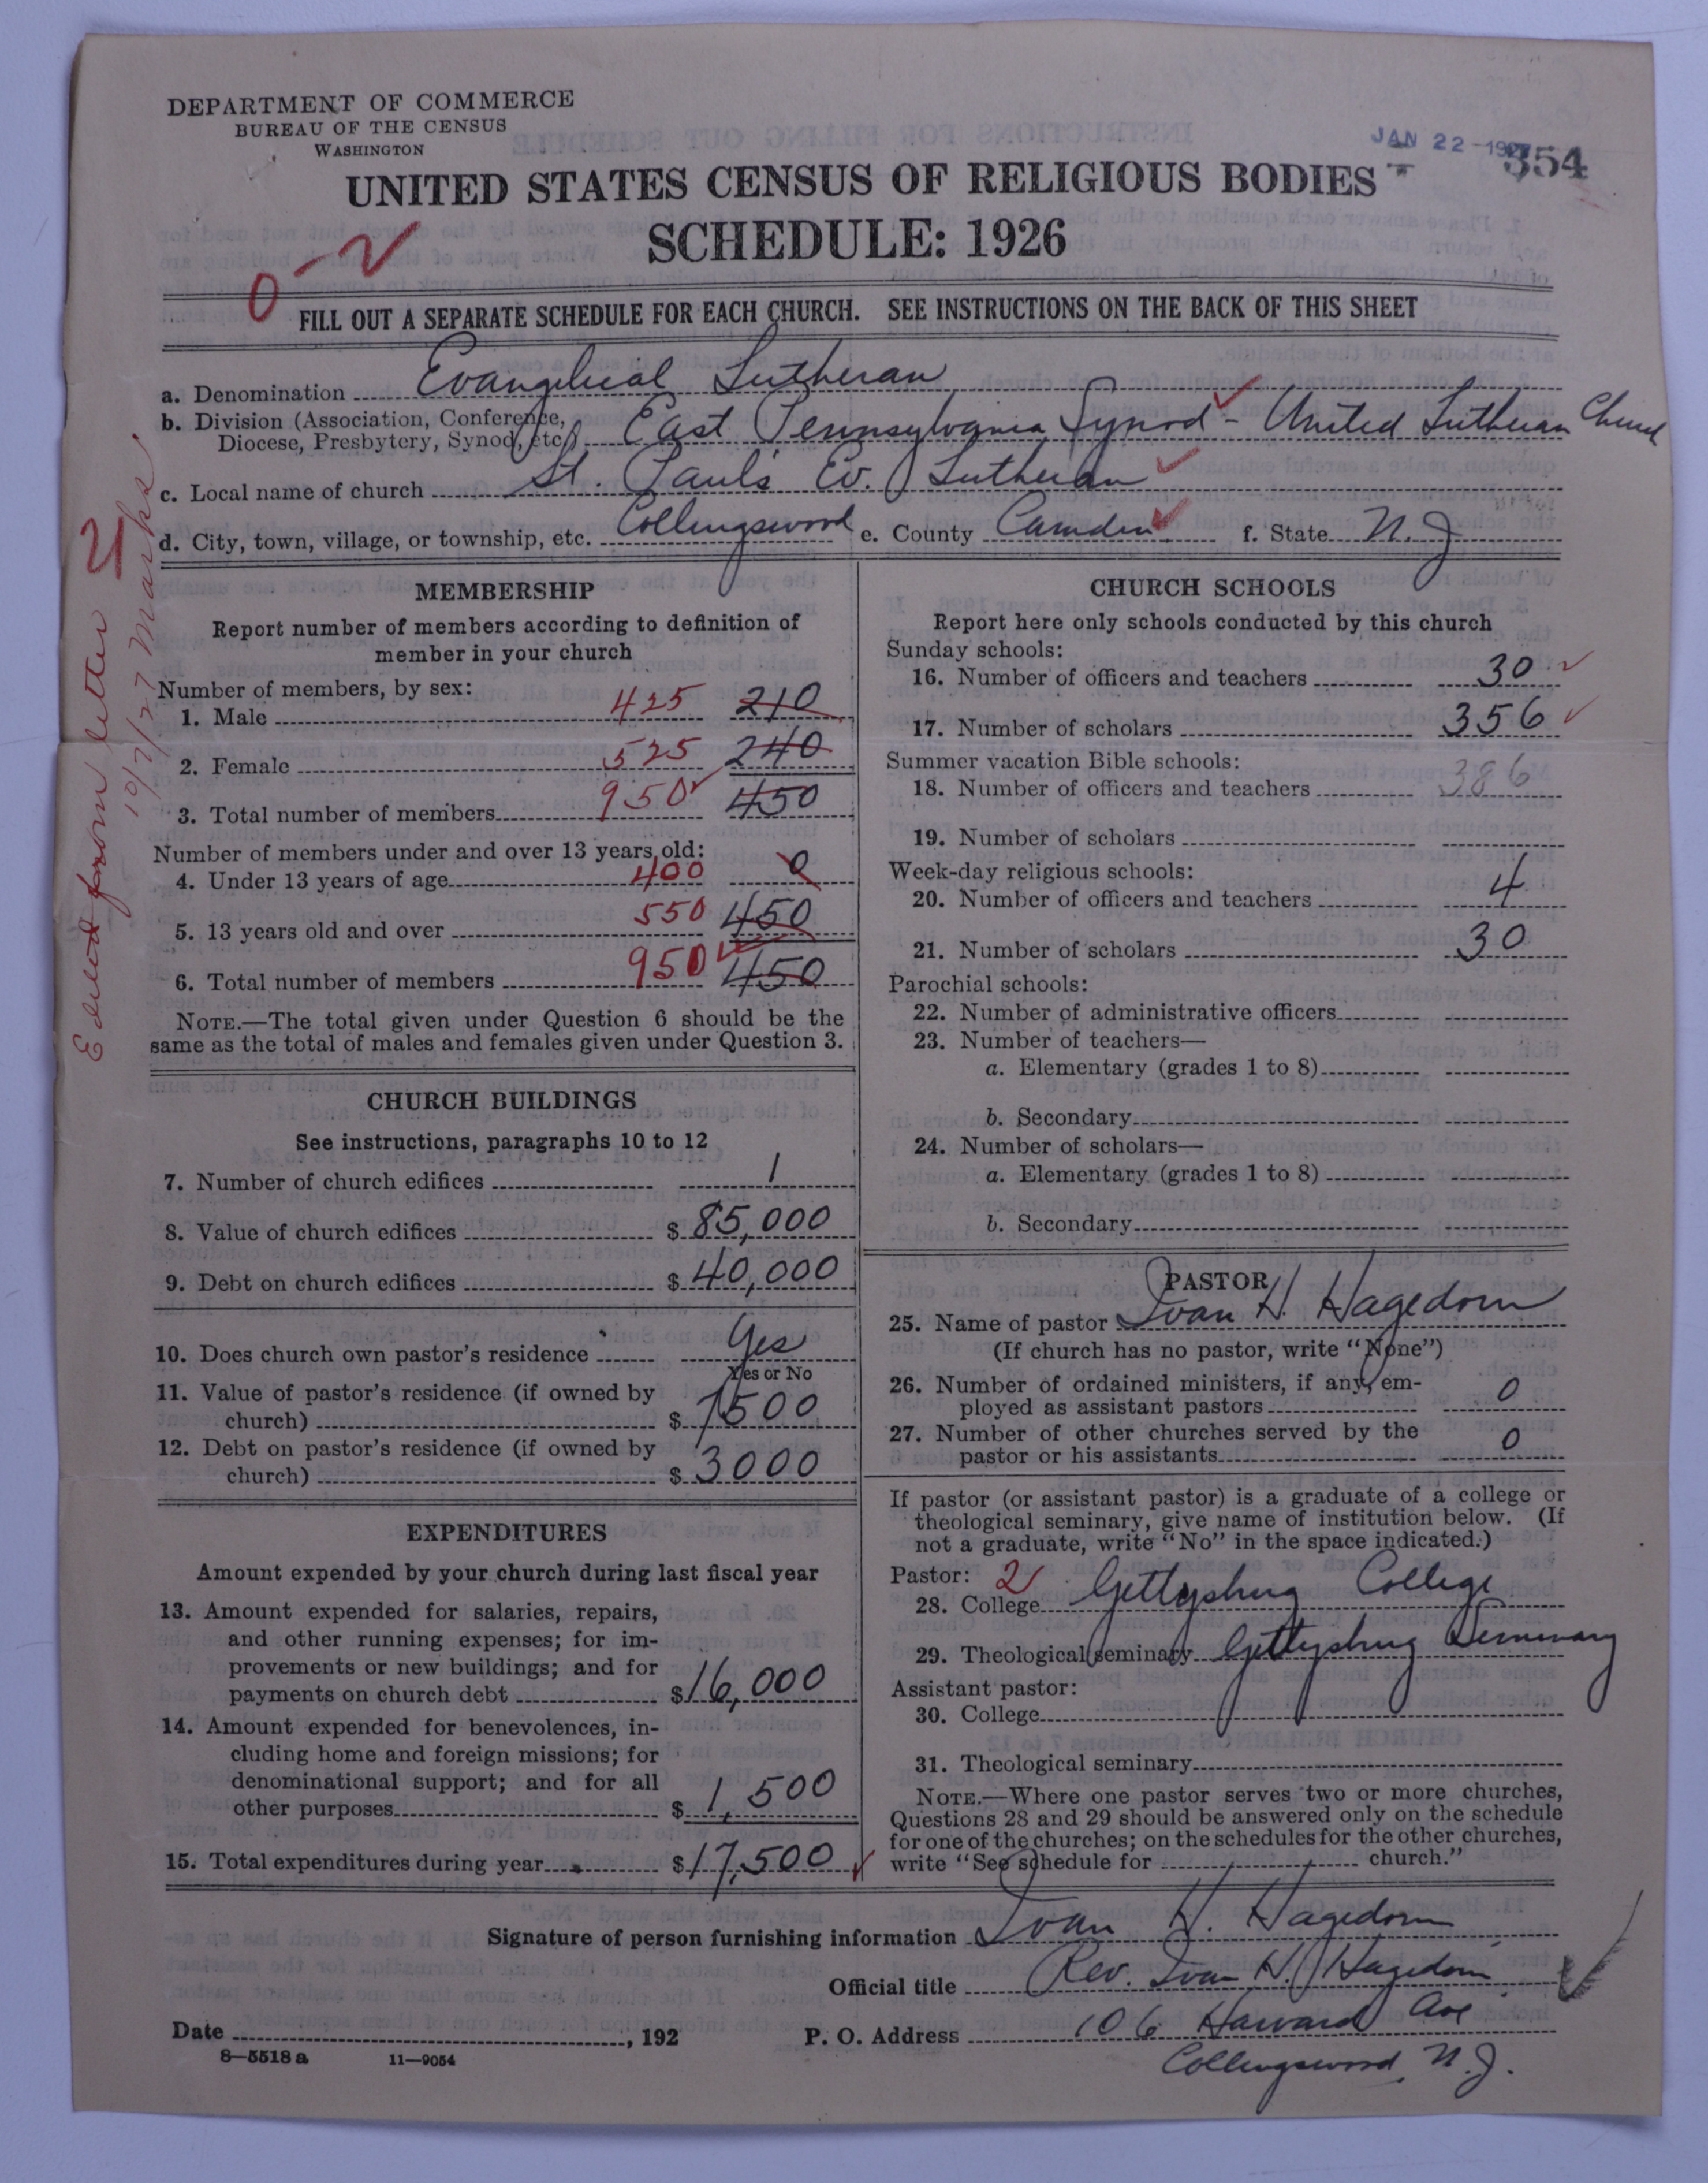 DEPARTMENT OF COMMERCE
BUREAU OF THE CENSUS
WASHINGTON
JAN 22 1927
354
UNITED STATES CENSUS OF RELIGIOUS BODIES
SCHEDULE: 1926
0-2
FILL OUT A SEPARATE SCHEDULE FOR EACH CHURCH. SEE INSTRUCTIONS ON THE BACK OF THIS SHEET
a. Denomination Evangelical Lutheran
b. Division (Association, Conference,
Diocese, Presbytery, Synod, etc.) East Pennsylvania Synod - United Lutheran Church
c. Local name of church St. Paul's Ev. Lutheran
d. City, town, village, or township, etc. Collingswood e. County Camden f. State N. J
Edited from letter 2
10/7/27 Marks
MEMBERSHIP
Report number of members according to definition of
member in your church
Number of members, by sex:
1. Male 425 210
2. Female 525 240
3. Total number of members 950 450
Number of members under and over 13 years old:
4. Under 13 years of age 400 0
5. 13 years old and over 550 450
6. Total number of members 950 450
NOTE.—The total given under Question 6 should be the
same as the total of males and females given under Question 3.
CHURCH BUILDINGS
See instructions, paragraphs 10 to 12
7. Number of church edifices 1
8. Value of church edifices $ 85,000
9. Debt on church edifices $ 40,000
10. Does church own pastor's residence Yes
Yes or No
11. Value of pastor's residence (if owned by
church) $ 7500
12. Debt on pastor's residence (if owned by
church) $ 3000
EXPENDITURES
Amount expended by your church during last fiscal year
13. Amount expended for salaries, repairs,
and other running expenses; for im-
provements or new buildings; and for
payments on church debt $ 16,000
14. Amount expended for benevolences, in-
cluding home and foreign missions; for
denominational support; and for all
other purposes $ 1,500
15. Total expenditures during year $ 17,500
CHURCH SCHOOLS
Report here only schools conducted by this church
Sunday schools:
16. Number of officers and teachers 30
17. Number of scholars 356
Summer vacation Bible schools:
18. Number of officers and teachers 386
19. Number of scholars
Week-day religious schools:
20. Number of officers and teachers 4
21. Number of scholars 30
Parochial schools:
22. Number of administrative officers
23. Number of teachers—
a. Elementary (grades 1 to 8)
b. Secondary
24. Number of scholars—
a. Elementary (grades 1 to 8)
b. Secondary
PASTOR
25. Name of pastor Ivan H. Hagedorn
(If church has no pastor, write "None")
26. Number of ordained ministers, if any, em-
ployed as assistant pastors 0
27. Number of other churches served by the
pastor or his assistants 0
If pastor (or assistant pastor) is a graduate of a college or
theological seminary, give name of institution below. (If
not a graduate, write "No" in the space indicated.)
Pastor: 2
28. College Gettysburg College
29. Theological seminary Gettysburg Seminary
Assistant pastor:
30. College
31. Theological seminary
NOTE.—Where one pastor serves two or more churches,
Questions 28 and 29 should be answered only on the schedule
for one of the churches; on the schedules for the other churches,
write "See schedule for church."
Signature of person furnishing information Ivan H. Hagedorn
Official title Rev. Ivan H. Hagedorn
Date , 192 P. O. Address 106 Harvard Ave
Collingswood, N. J.
8—5518 a 11—9054